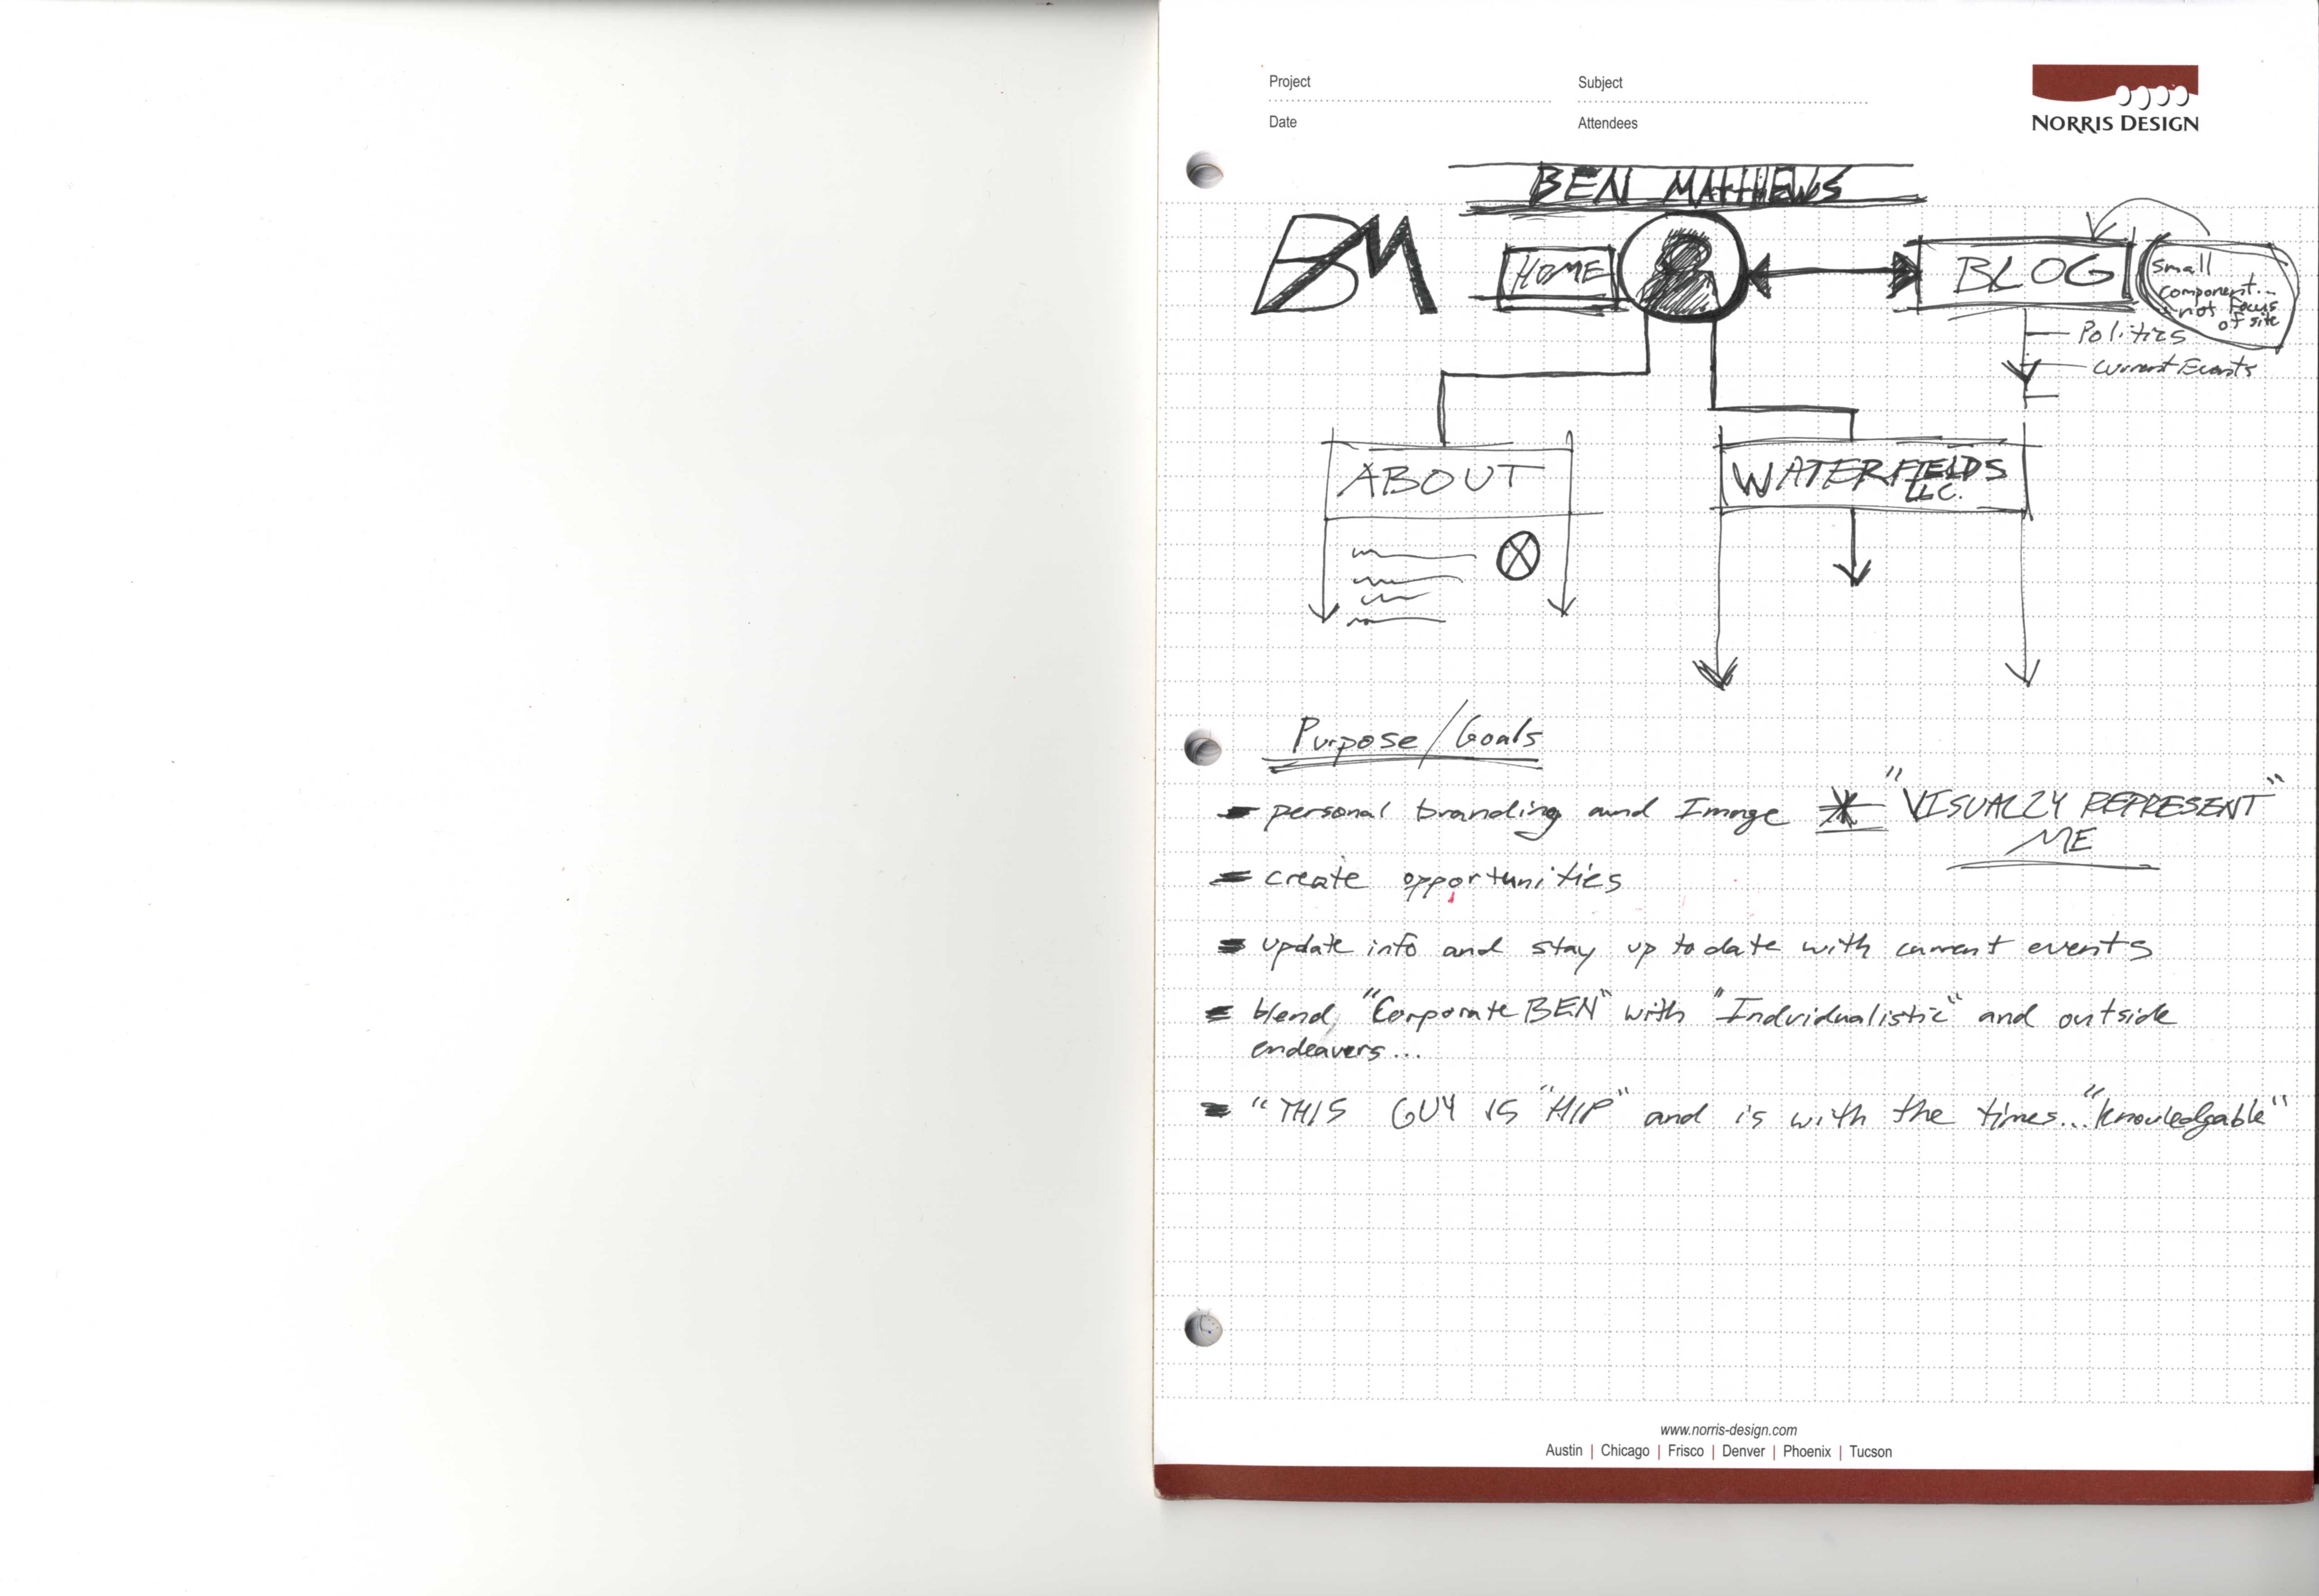 Project
Subject
Date
Attendees
NORRIS DESIGN
BEN MATTHEWS
BM
HOME
BLOG
small
component...
not Focus
of site
Politics
Current Events
ABOUT
WATERFIELDS
LLC.
Purpose/Goals
- personal branding and Image * "VISUALLY REPRESENT"
ME
- create opportunities
- update info and stay up to date with current events
- blend "Corporate BEN" with "Individualistic" and outside
endeavers...
- "THIS GUY IS "HIP" and is with the times..."knowledgable"
www.norris-design.com
Austin | Chicago | Frisco | Denver | Phoenix | Tucson